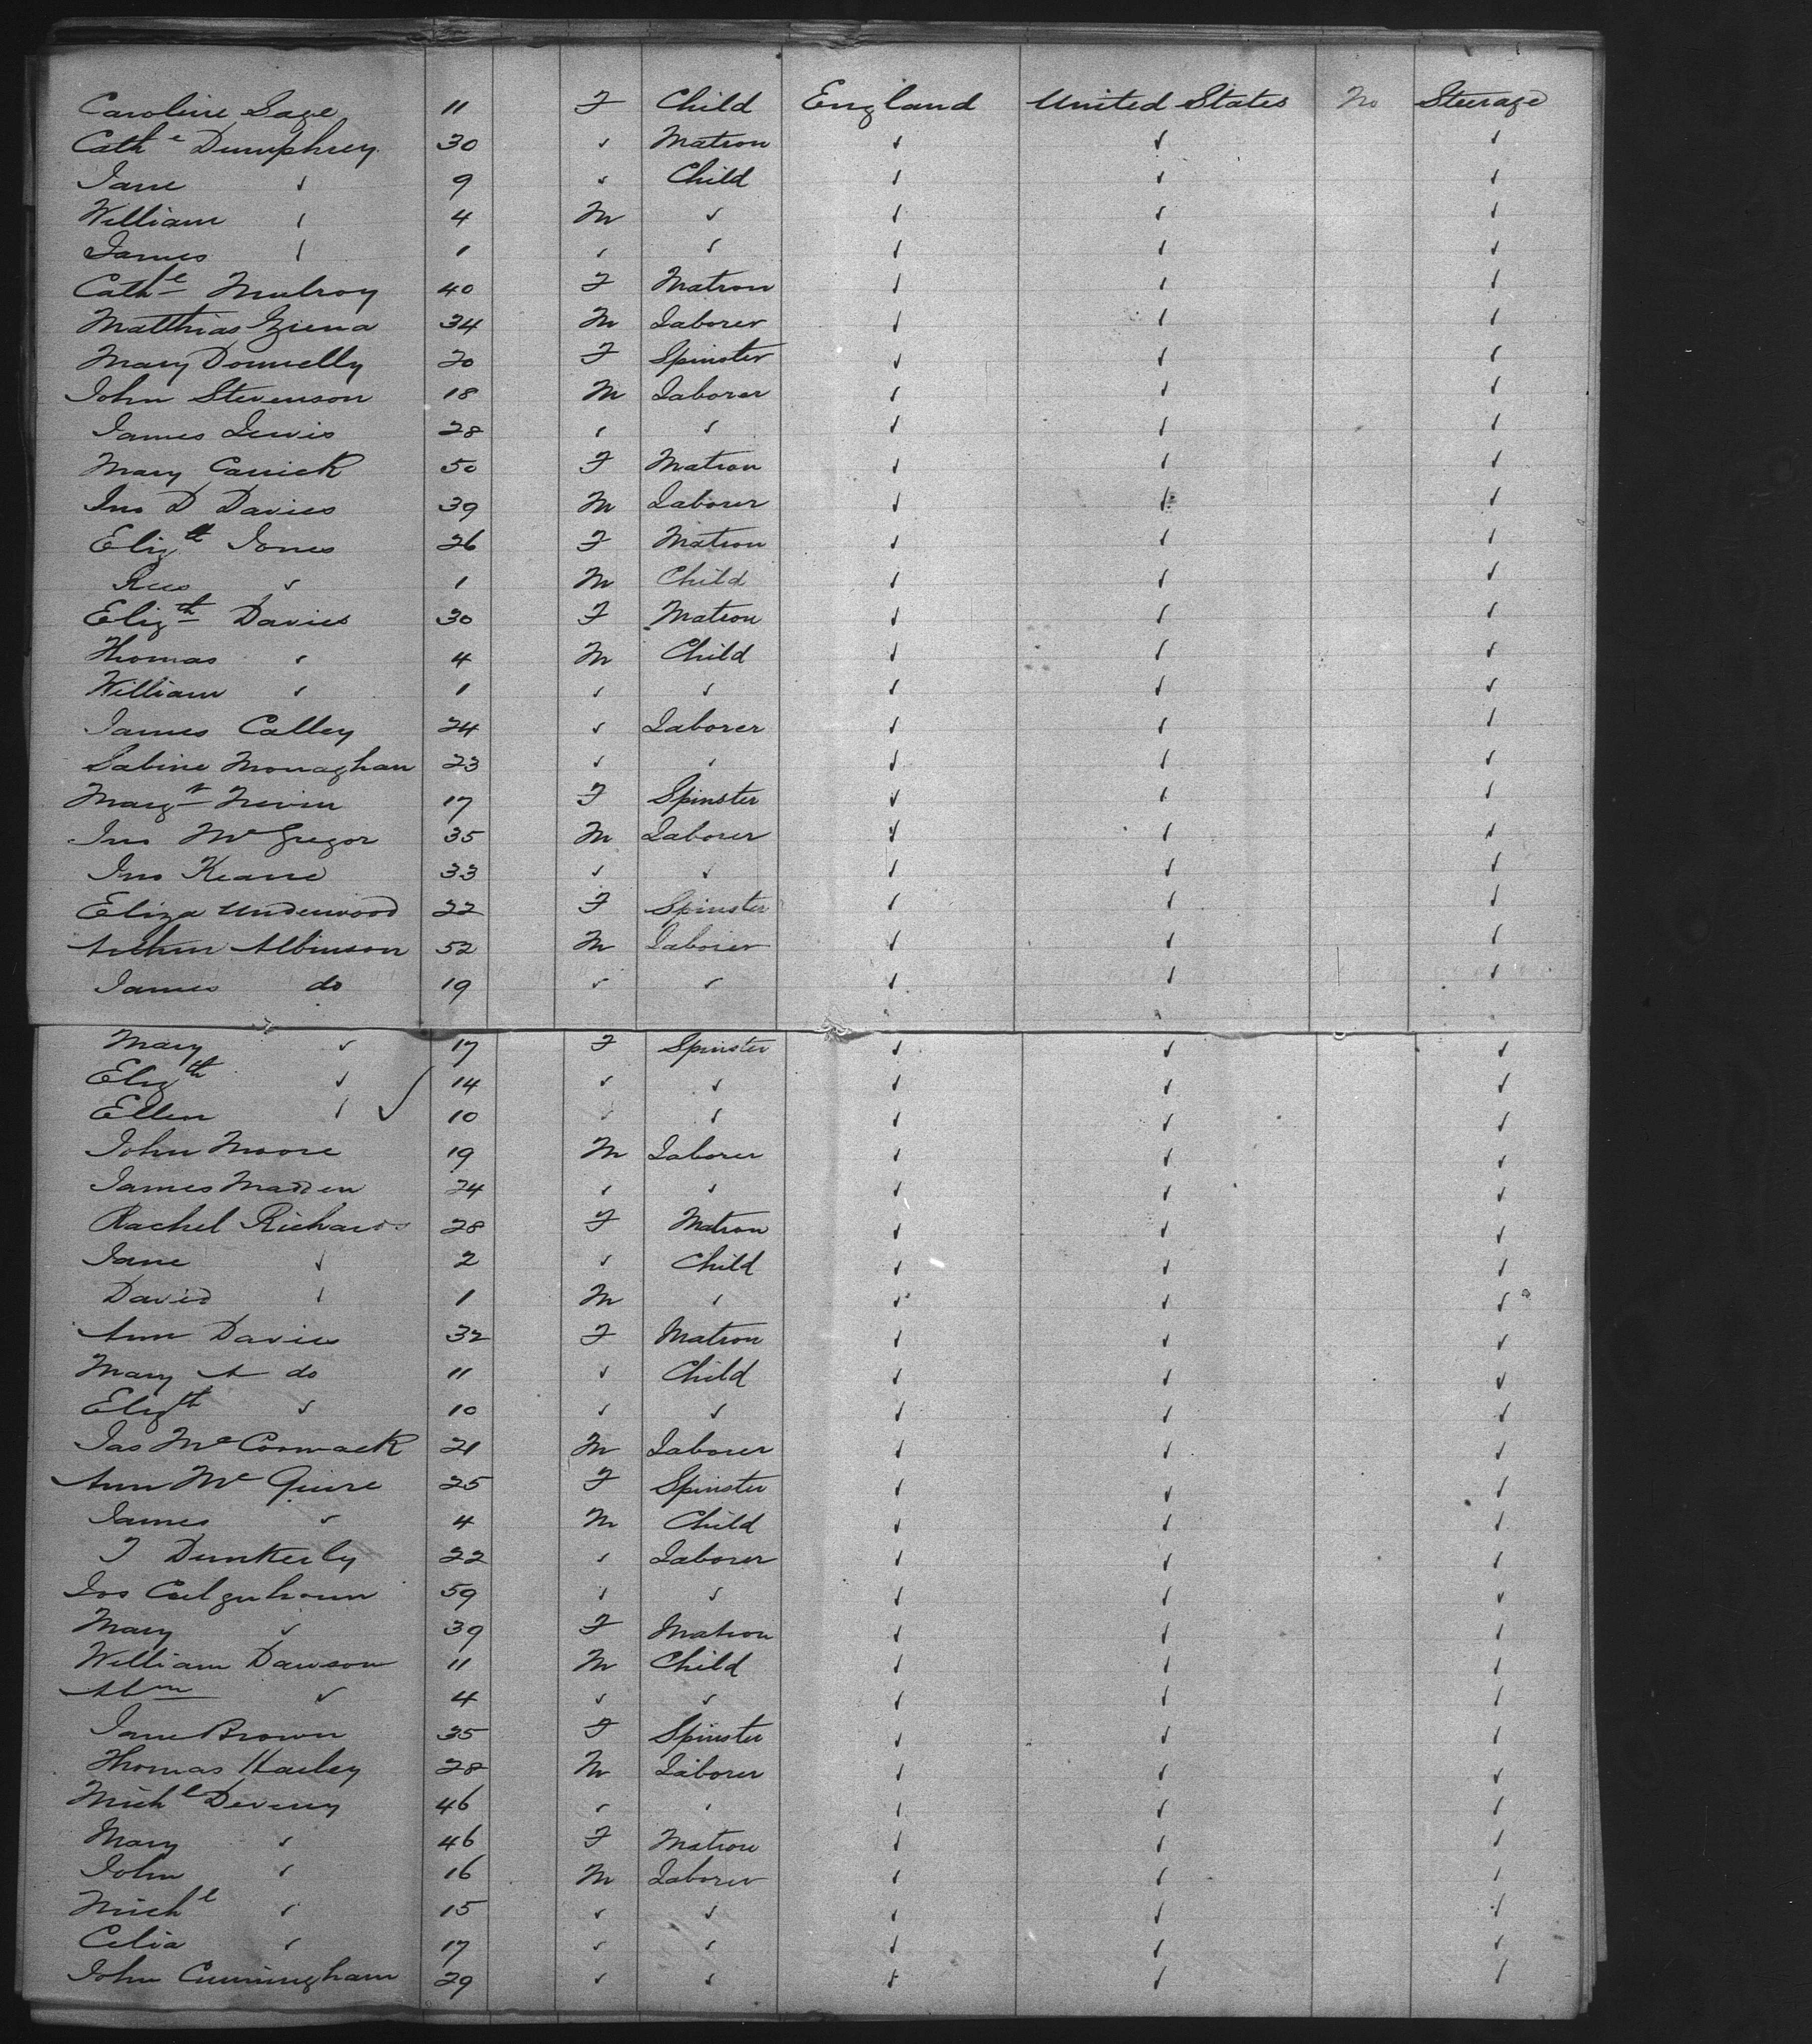 Caroline Sage 11 F Child England United States No Steerage
Cathe Dumphrey 30 ✓ Matron ✓ ✓ ✓
Jane ✓ 9 ✓ Child ✓ ✓ ✓
William ✓ 4 M ✓ ✓ ✓ ✓
James ✓ 1 ✓ ✓ ✓ ✓ ✓
Cathe Mulroy 40 F Matron ✓ ✓ ✓
Matthias 34 M Laborer ✓ ✓ ✓
Mary Donnelly 20 F Spinster ✓ ✓ ✓
John Stevenson 18 M Laborer ✓ ✓ ✓
James Lewis 28 ✓ ✓ ✓ ✓ ✓
Mary Carrick 50 F Matron ✓ ✓ ✓
Jno D Davies 39 M Laborer ✓ ✓ ✓
Elizth Jones 26 F Matron ✓ ✓ ✓
Rees ✓ 1 M Child ✓ ✓ ✓
Elizth Davies 30 F Matron ✓ ✓ ✓
Thomas ✓ 4 M Child ✓ ✓ ✓
William ✓ 1 ✓ ✓ ✓ ✓ ✓
James Calley 24 ✓ Laborer ✓ ✓ ✓
Sabine Monaghan 23 ✓ ✓ ✓ ✓ ✓
Margt Nevin 17 F Spinster ✓ ✓ ✓
Jno McGregor 35 M Laborer ✓ ✓ ✓
Jno Keane 33 ✓ ✓ ✓ ✓ ✓
Eliza Underwood 22 F Spinster ✓ ✓ ✓
Arthur Albinson 52 M Laborer ✓ ✓ ✓
James do 19 ✓ ✓ ✓ ✓ ✓
Mary ✓ 17 F Spinster ✓ ✓ ✓
Elizth ✓ 14 ✓ ✓ ✓ ✓ ✓
Ellen ✓ ✓ 10 ✓ ✓ ✓ ✓ ✓
John Moore 19 M Laborer ✓ ✓ ✓
James Madden 24 ✓ ✓ ✓ ✓ ✓
Rachel Richards 28 F Matron ✓ ✓ ✓
Jane ✓ 2 ✓ Child ✓ ✓ ✓
David ✓ 1 M ✓ ✓ ✓ ✓
Ann Davies 32 F Matron ✓ ✓ ✓
Mary A do 11 ✓ Child ✓ ✓ ✓
Elizth ✓ 10 ✓ ✓ ✓ ✓ ✓
Jas McCormack 21 M Laborer ✓ ✓ ✓
Ann McGuire 25 F Spinster ✓ ✓ ✓
James ✓ 4 M Child ✓ ✓ ✓
J Dunkerly 22 ✓ Laborer ✓ ✓ ✓
Jos Culquhoun 59 ✓ ✓ ✓ ✓ ✓
Mary ✓ 39 F Matron ✓ ✓ ✓
William Dawson 11 M Child ✓ ✓ ✓
Abm ✓ 4 ✓ ✓ ✓ ✓ ✓
Jane Brown 35 F Spinster ✓ ✓ ✓
Thomas Harley 28 M Laborer ✓ ✓ ✓
Michl Deveny 46 ✓ ✓ ✓ ✓ ✓
Mary ✓ 46 F Matron ✓ ✓ ✓
John ✓ 16 M Laborer ✓ ✓ ✓
Michl ✓ 15 ✓ ✓ ✓ ✓ ✓
Celia ✓ 17 ✓ ✓ ✓ ✓ ✓
John Cunningham 29 ✓ ✓ ✓ ✓ ✓